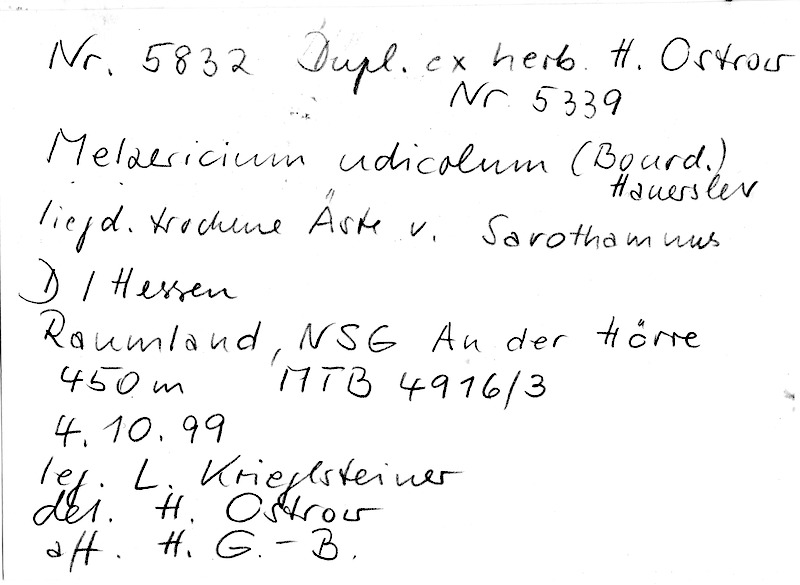 Nr. 5832 Dupl. ex herb. H. Ostrow
Nr 5339
Melzericium udicolum (Bourd.)
Hauerslev
liegd. trockene Äste v. Sarothamnus
D / Hessen
Raumland, NSG An der Hörre
450 m MTB 4916/3
4.10.99
leg. L. Krieglsteiner
det. H. Ostrow
aff. H. G.-B.